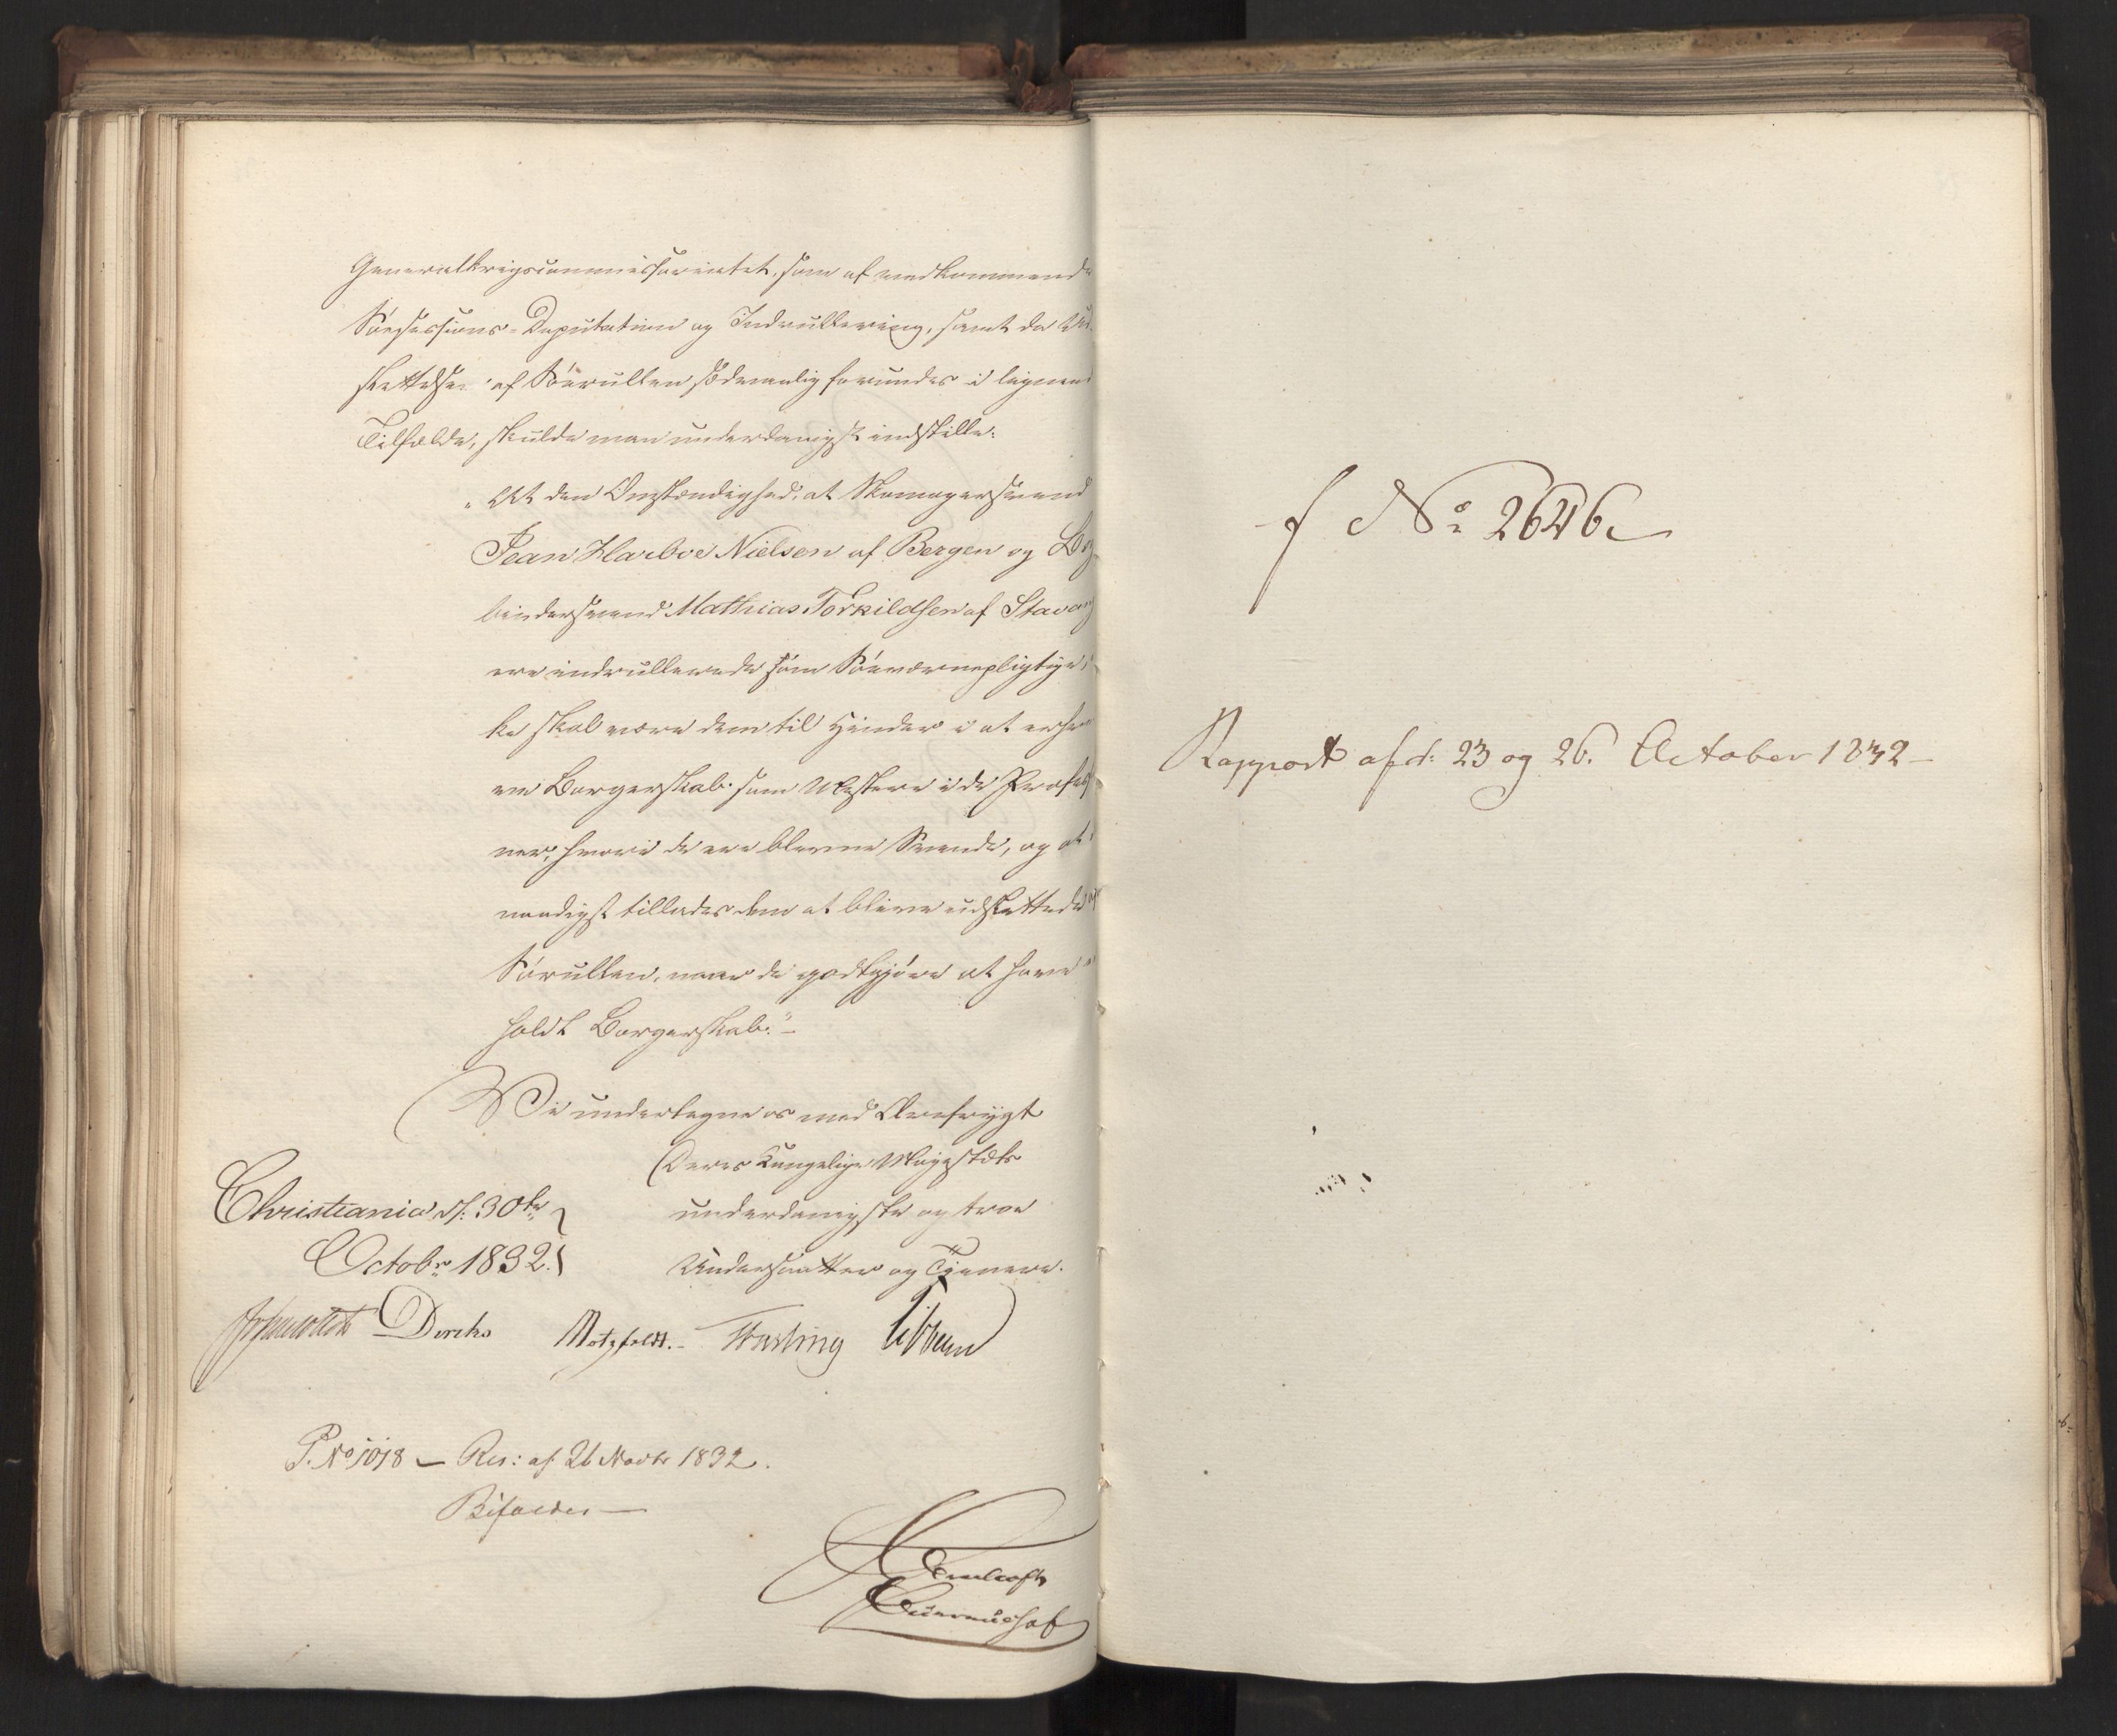 Generalkrigscommissariatet, som af vedkommende
Søesessions-Deputation og Indrullering, samt da Ud-
slettelse af Søerullen sædvanlig forundes i lignend
Tilfælde, skulde man underdanigst indstille:
"At den Omstændighed, at Skomagersvend
Jean Harboe Nielsen af Bergen og Bog
bindersvend Mathias Torkildsen af Stavang
ere indrullerede som Søeværnepligtige, i
ke skal være dem til Hinder i at erhve
ve Borgerskab som Mestere i de Profess
ner, hvori de ere blevne Svende, og at
naadigst tillades dem at blive udslettede af
Sørullen, naar de godtgjøre at have
holdt Borgerskab."
Vi undertegne os med Ærefrygt
Deres Kongelige Majestæts
Christiania d: 30te
underdanigste og troe
Octobr 1832.
Undersaatter og Tjenere.
Diriks Motzfeldt. Fasting
P. No 1018 — Res: af 26 Novbr 1832.
Bifaldes —
f No 2646
Rapport af d: 23 og 26. October 1832 —